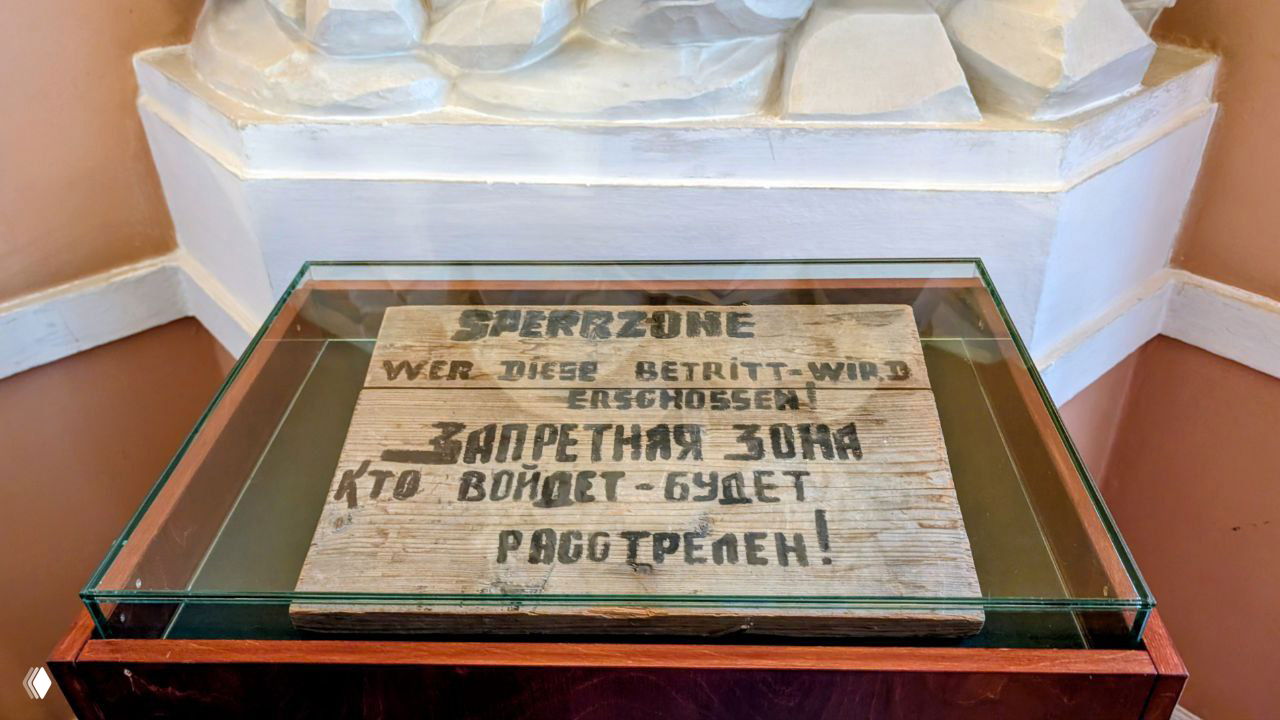 SPERRZONE
WER DIESE BETRITT-WIRD
ERSCHOSSEN!
ЗАПРЕТНАЯ ЗОНА
КТО ВОЙДЕТ-БУДЕТ
РАССТРЕЛЕН!